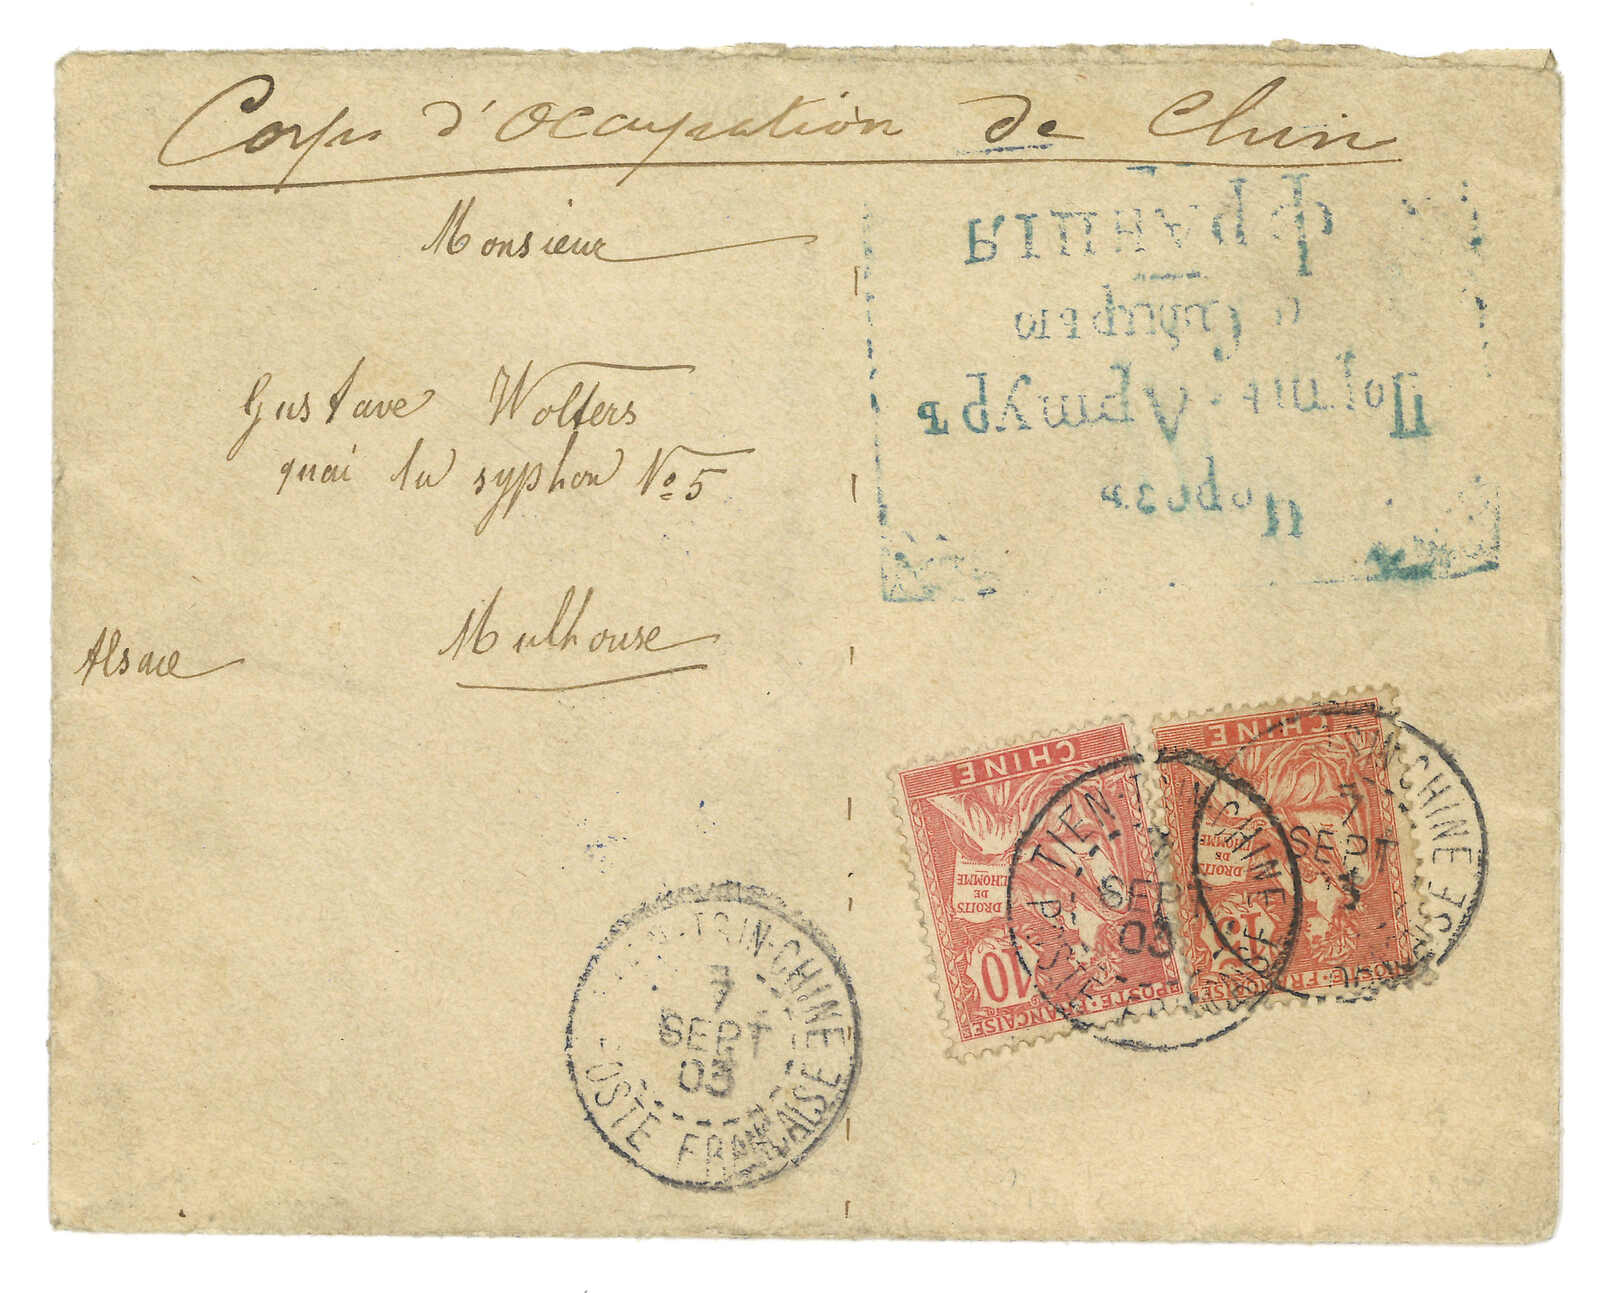 Corps d'Occupation de Chine
Monsieur
Gustave Wolters
quai du syphon No 5
Mulhouse
Alsace
Черезъ
Портъ-Артуръ
и Сибирью
Франція
CHINE
DROITS
DE
L'HOMME
10
POSTE FRANÇAISE
CHINE
DROITS
DE
L'HOMME
15
POSTE FRANÇAISE
TIEN-TSIN-CHINE
SEPT
03
POSTE FRANÇAISE
TSIN-CHINE
7
SEPT
3
TSIN-CHINE
7
SEPT
03
POSTE FRANÇAISE